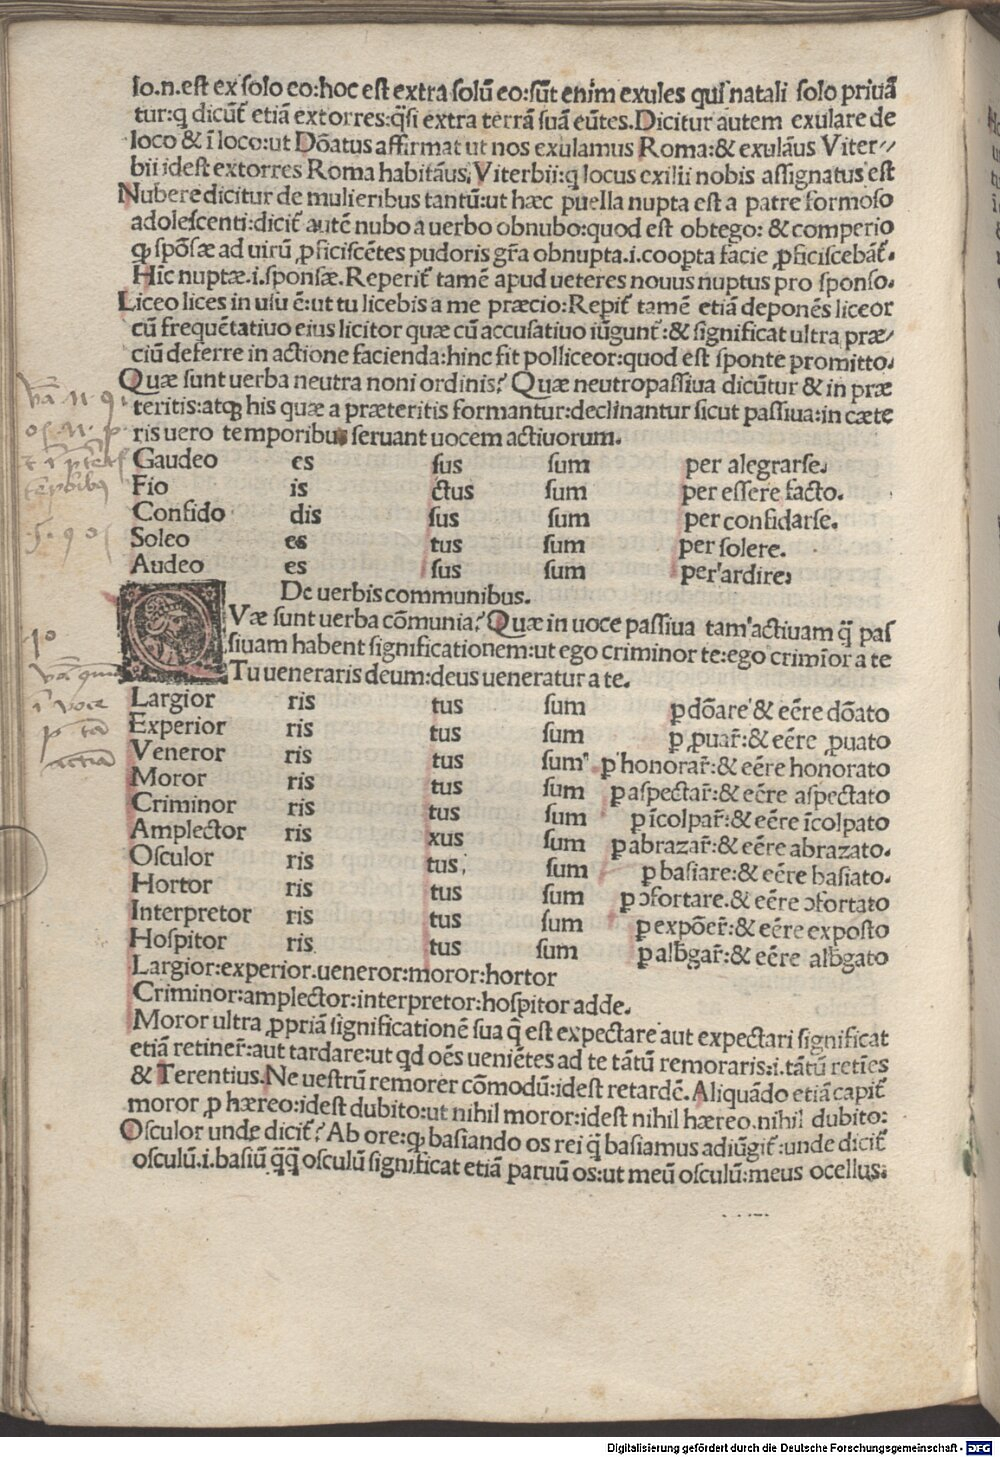 lo.n.est ex solo eo:hoc est extra solū eo:sūt enim exules qui natali solo priuā
tur:q dicūt̃ etiā extorres:q̃si extra terrā suā eūtes.Dicitur autem exulare de
loco & ī loco:ut Dōatus affirmat ut nos exulamus Roma:& exulāus Viter
bii idest extorres Roma habitāus, Viterbii:q locus exilii nobis assignatus est
Nubere dicitur de mulieribus tantū:ut hæc puella nupta est a patre formoso
adolescenti:dicit̃ autē nubo a uerbo obnubo:quod est obtego: & comperio
ꝙ spōsæ ad uirū ꝓficiscētes pudoris gr̃a obnupta.i.coopta facie ꝓficiscebāt̃.
Hīc nuptæ.i.sponsæ.Reperit̃ tamē apud ueteres nouus nuptus pro sponso.
Liceo lices in usu ē:ut tu licebis a me præcio:Repit̃ tamē etiā deponēs liceor
cū frequētatiuo eius licitor quæ cū accusatiuo iūgunt̃:& significat ultra præ
ciū deferre in actione facienda:hinc fit polliceor:quod est sponte promitto.
Quæ sunt uerba neutra noni ordinis? Quæ neutropassiua dicūtur & in præ
teritis:atqꝫ his quæ a præteritis formantur:declinantur sicut passiua:in cæte
ris uero temporibus seruant uocem actiuorum.
Gaudeo es sus sum per alegrarse.
Fio is ctus sum per essere facto.
Confido dis sus sum per confidarse.
Soleo es tus sum per solere.
Audeo es sus sum per ardire.
De uerbis communibus.
QVæ sunt uerba cōmunia? Quæ in uoce passiua tam actiuam q̃ pas
siuam habent significationem:ut ego criminor te:ego crimīor a te
Tu ueneraris deum:deus ueneratur a te.
Largior ris tus sum ꝑ dōare & eēre dōato
Experior ris tus sum ꝑ ꝓuar̃:& eēre ꝓuato
Veneror ris tus sum ꝑ honorar̃:& eēre honorato
Moror ris tus sum ꝑ aspectar̃:& eēre aspectato
Criminor ris tus sum ꝑ īcolpar̃:& eēre īcolpato
Amplector ris xus sum ꝑ abrazar̃:& eēre abrazato.
Osculor ris tus sum ꝑ basiare:& eēre basiato.
Hortor ris tus sum ꝑ ↄfortare.& eēre ↄfortato
Interpretor ris tus sum ꝑ expōer̃:& eēre exposto
Hospitor ris tus sum ꝑ alb̃gar̃:& eēre alb̃gato
Largior:experior.ueneror:moror:hortor
Criminor:amplector:interpretor:hospitor adde.
Moror ultra ꝓpriā significationē sua q̃ est expectare aut expectari significat
etiā retiner̃:aut tardare:ut qd oēs ueniētes ad te tātū remoraris:i.tātū retīes
& Terentius.Ne uestrū remorer cōmodū:idest retardē.Aliquādo etiā capit̃
moror ꝓ hæreo:idest dubito:ut nihil moror:idest nihil hæreo.nihil dubito:
Osculor unde dicit̃? Ab ore:ꝙ basiando os rei q̃ basiamus adiūgit̃:unde dicit̃
osculū.i.basiū q̃q̃ osculū significat etiā paruū os:ut meū osculū:meus ocellus.
Digitalisierung gefördert durch die Deutsche Forschungsgemeinschaft - DFG